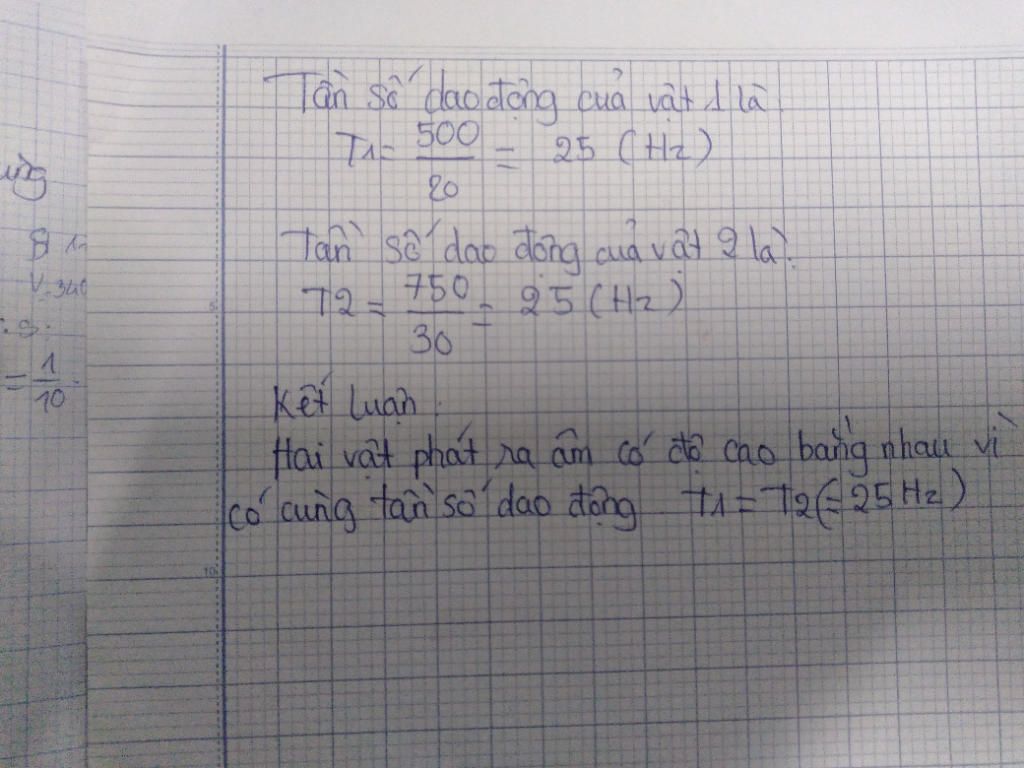 Tần số dao động của vật 1 là
T1 = 500/20 = 25 (Hz)
Tần số dao động của vật 2 là:
T2 = 750/30 = 25 (Hz)
Kết luận:
Hai vật phát ra âm có độ cao bằng nhau vì
có cùng tần số dao động T1 = T2 (= 25 Hz)
ứng
V=340
= 1/10